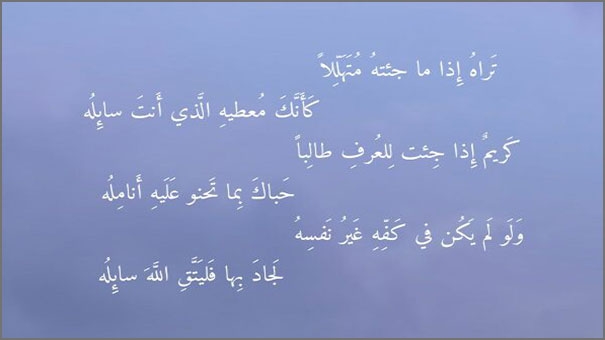 تَراهُ إِذا ما جئتهُ مُتَهَلِّلاً
كَأَنَّكَ مُعطيهِ الَّذي أَنتَ سائِلُه
كَريمٌ إِذا جِئت لِلعُرفِ طالِباً
حَباكَ بِما تَحنو عَلَيهِ أَنامِلُه
وَلَو لَم يَكُن في كَفِّهِ غَيرُ نَفسِهُ
لَجادَ بِها فَليَتَّقِ اللَّهَ سائِلُه